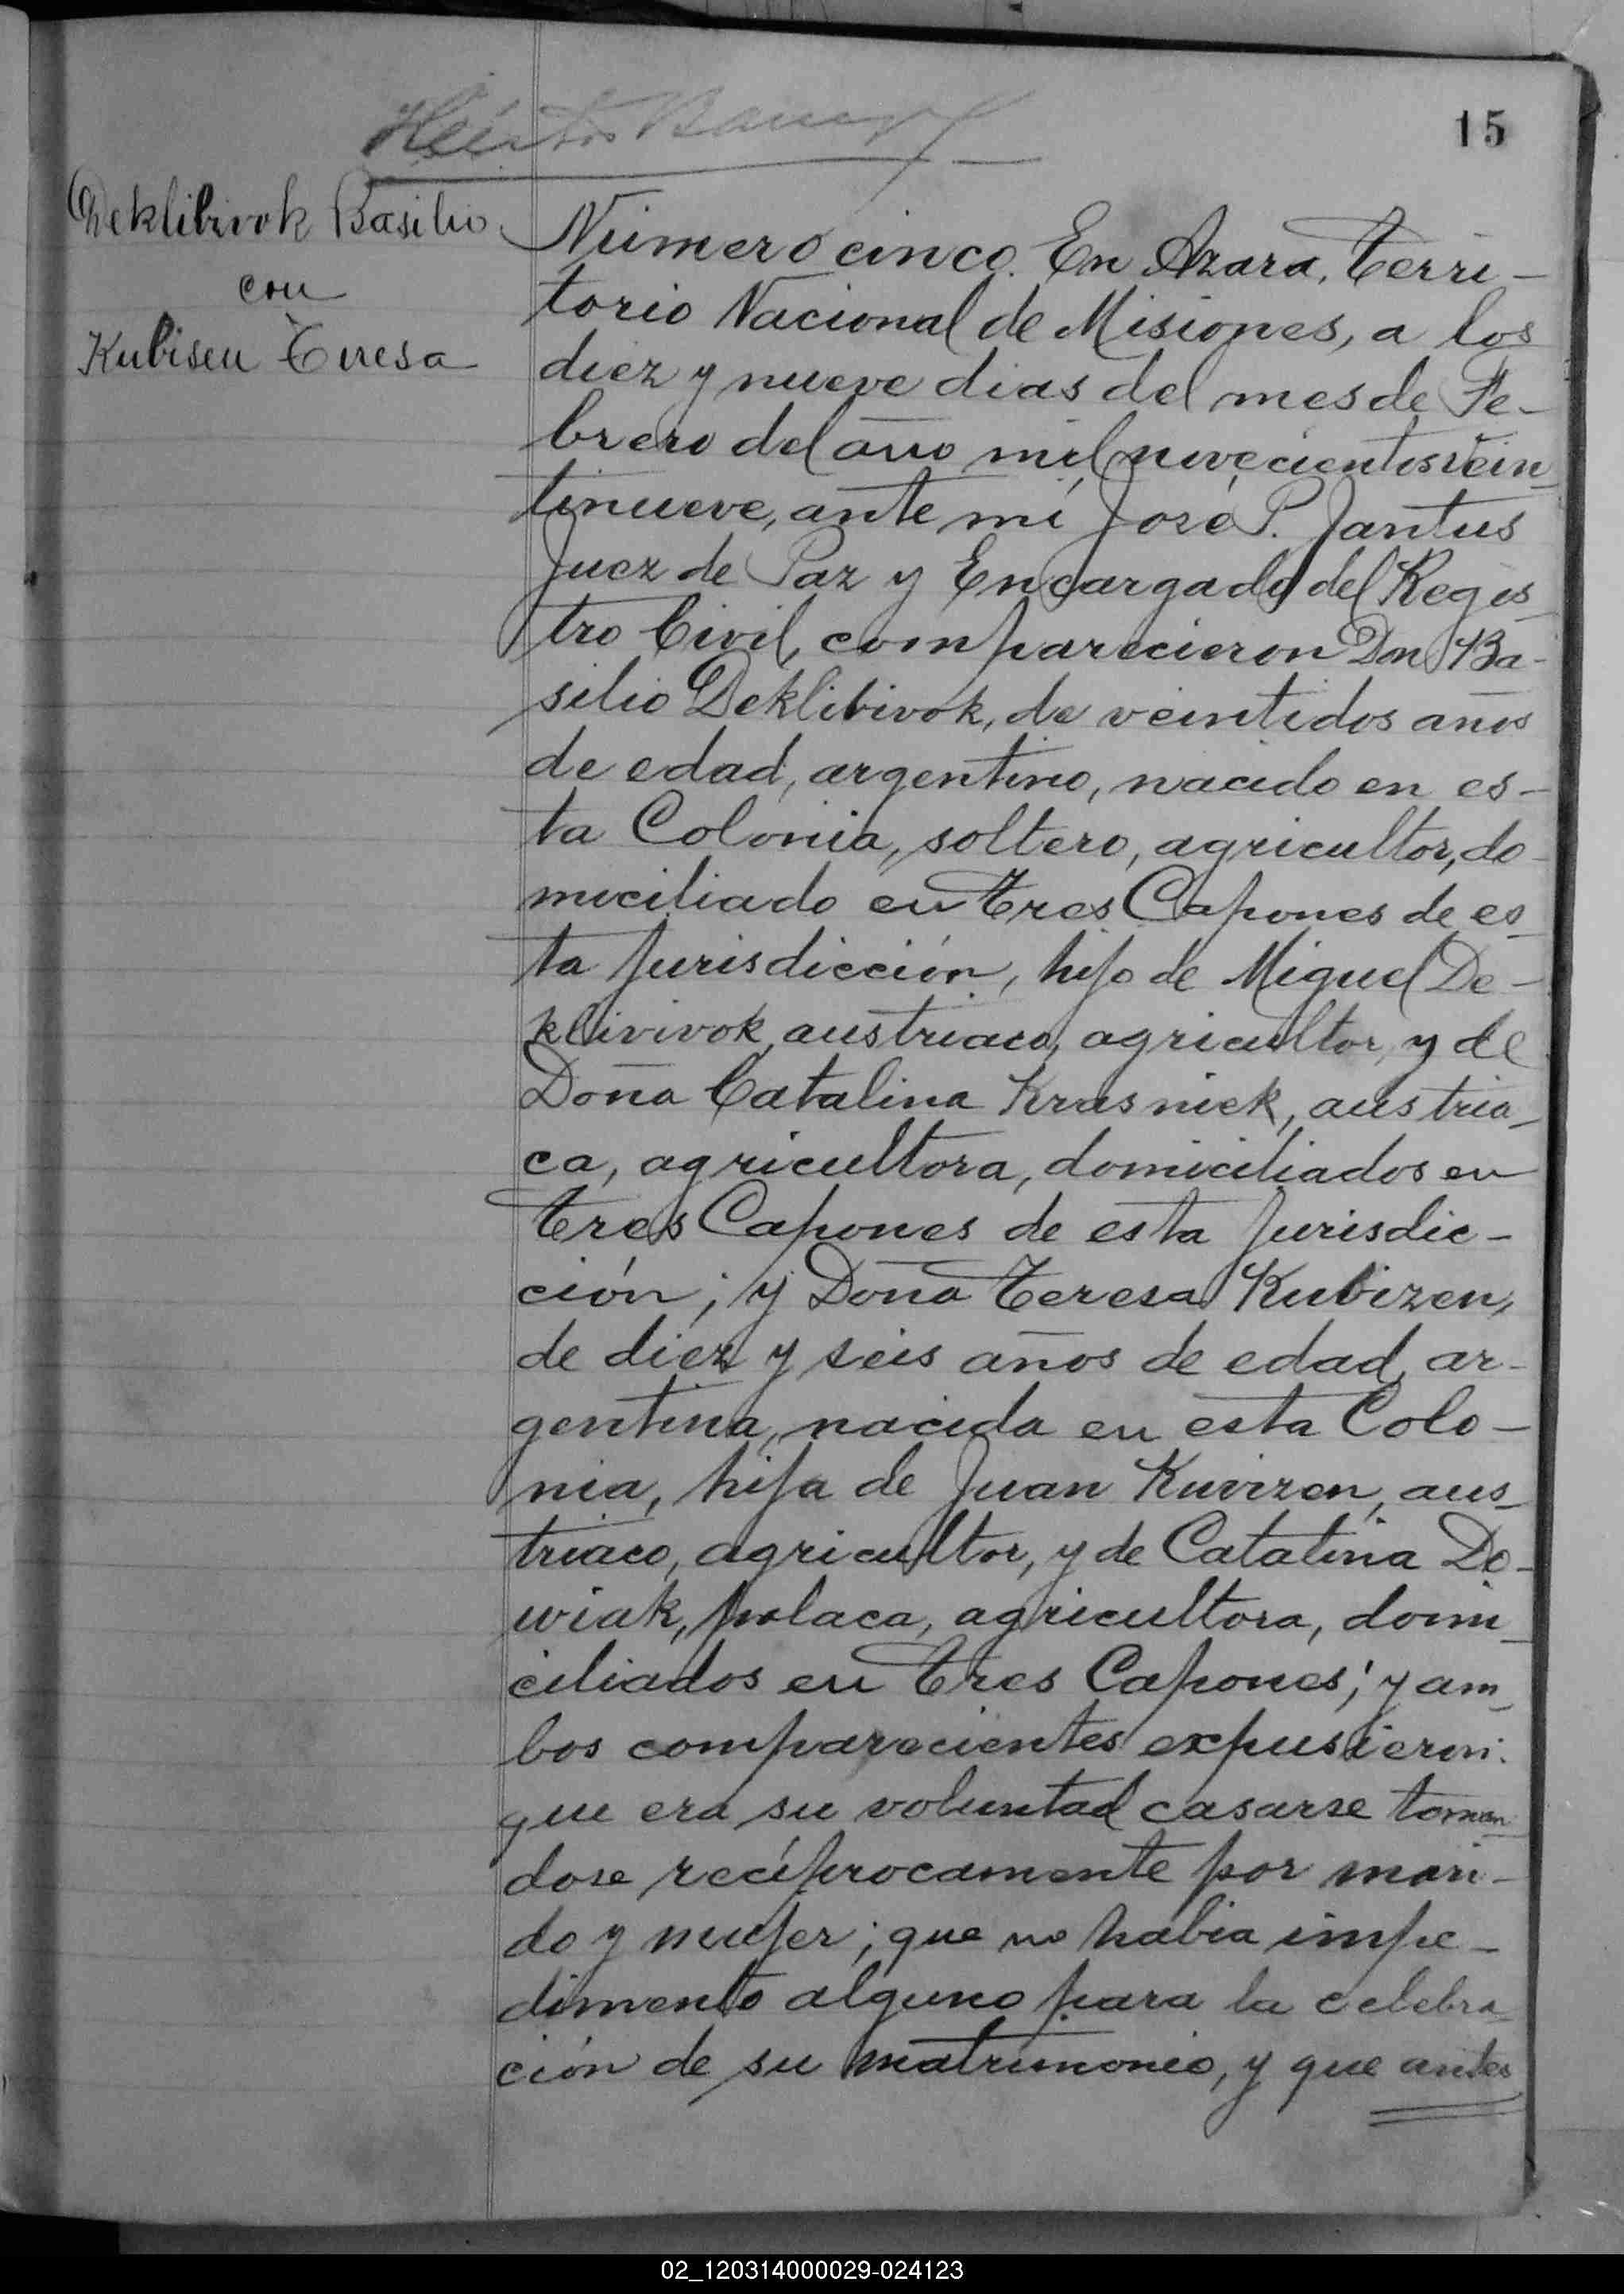 15
Deklibivok Basilio
con
Kubiseu Teresa
Número cinco. En Azara, Terri-
torio Nacional de Misiones, a los
diez y nueve dias del mes de Fe-
brero del año mil novecientos vein
tinueve, ante mí José P. Jantus
Juez de Paz y Encargado del Regis
tro Civil, comparecieron Don Ba-
silio Deklibivok, de veintidos años
de edad, argentino, nacido en es-
ta Colonia, soltero, agricultor, do-
miciliado en Tres Capones de es
ta Jurisdicción, hijo de Miguel De-
klivivok, austriaco, agricultor, y de
Doña Catalina Krasniek, austria
ca, agricultora, domiciliados en
Tres Capones de esta Jurisdic-
ción; y Doña Teresa Kubizen,
de diez y seis años de edad, ar-
gentina, nacida en esta Colo-
nia, hija de Juan Kuvizen, aus
triaco, agricultor, y de Catalina Do-
wiak, polaca, agricultora, domi
ciliados en Tres Capones; y am
bos comparecientes expusieron:
que era su voluntad casarse toman
dose recíprocamente por mari-
do y mujer; que no habia impe-
dimento alguno para la celebra
ción de su matrimonio, y que antes
02_120314000029-024123